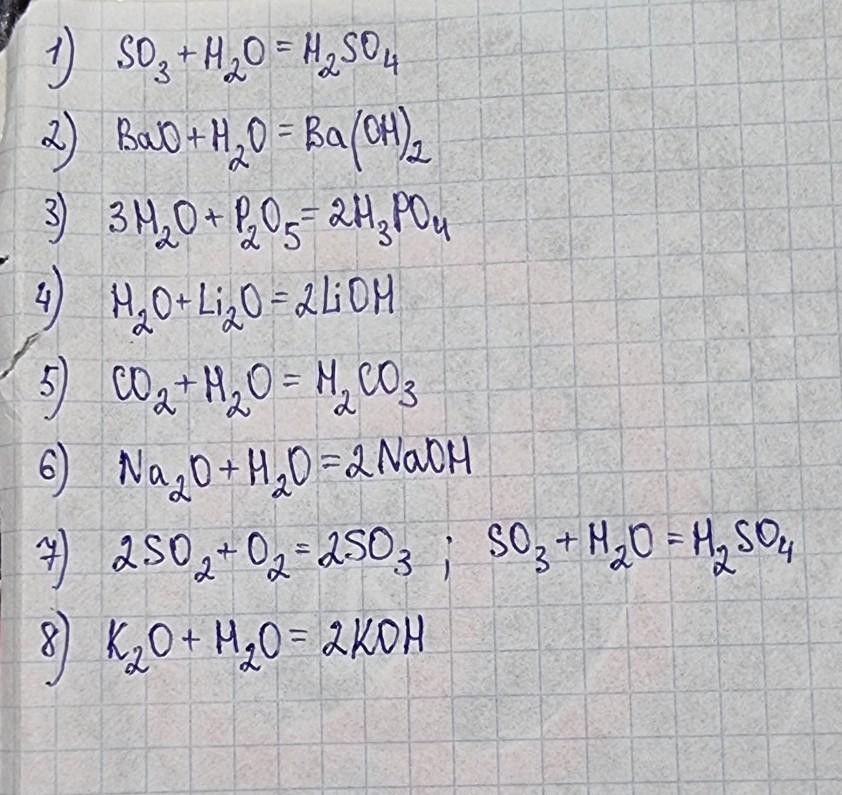 1) SO₃ + H₂O = H₂SO₄
2) BaO + H₂O = Ba(OH)₂
3) 3H₂O + P₂O₅ = 2H₃PO₄
4) H₂O + Li₂O = 2LiOH
5) CO₂ + H₂O = H₂CO₃
6) Na₂O + H₂O = 2NaOH
7) 2SO₂ + O₂ = 2SO₃ ; SO₃ + H₂O = H₂SO₄
8) K₂O + H₂O = 2KOH